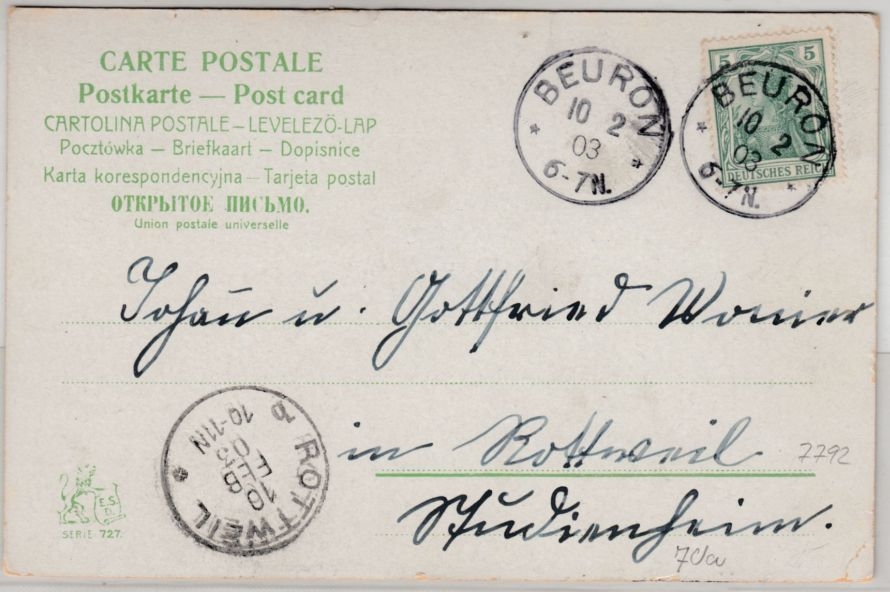 CARTE POSTALE
Postkarte — Post card
CARTOLINA POSTALE – LEVELEZŐ-LAP
Pocztówka — Briefkaart — Dopisnice
Karta korespondencyjna — Tarjeta postal
ОТКРЫТОЕ ПИСЬМО.
Union postale universelle
BEURON
10 2
03
6-7N.
5 5
DEUTSCHES REICH
BEURON
10 2
03
6-7N.
Johan u. Gottfried
in Rottweil
7792
Studienheim.
ROTTWEIL
10 FEB 03
10-11N
E.S.
SERIE 727.